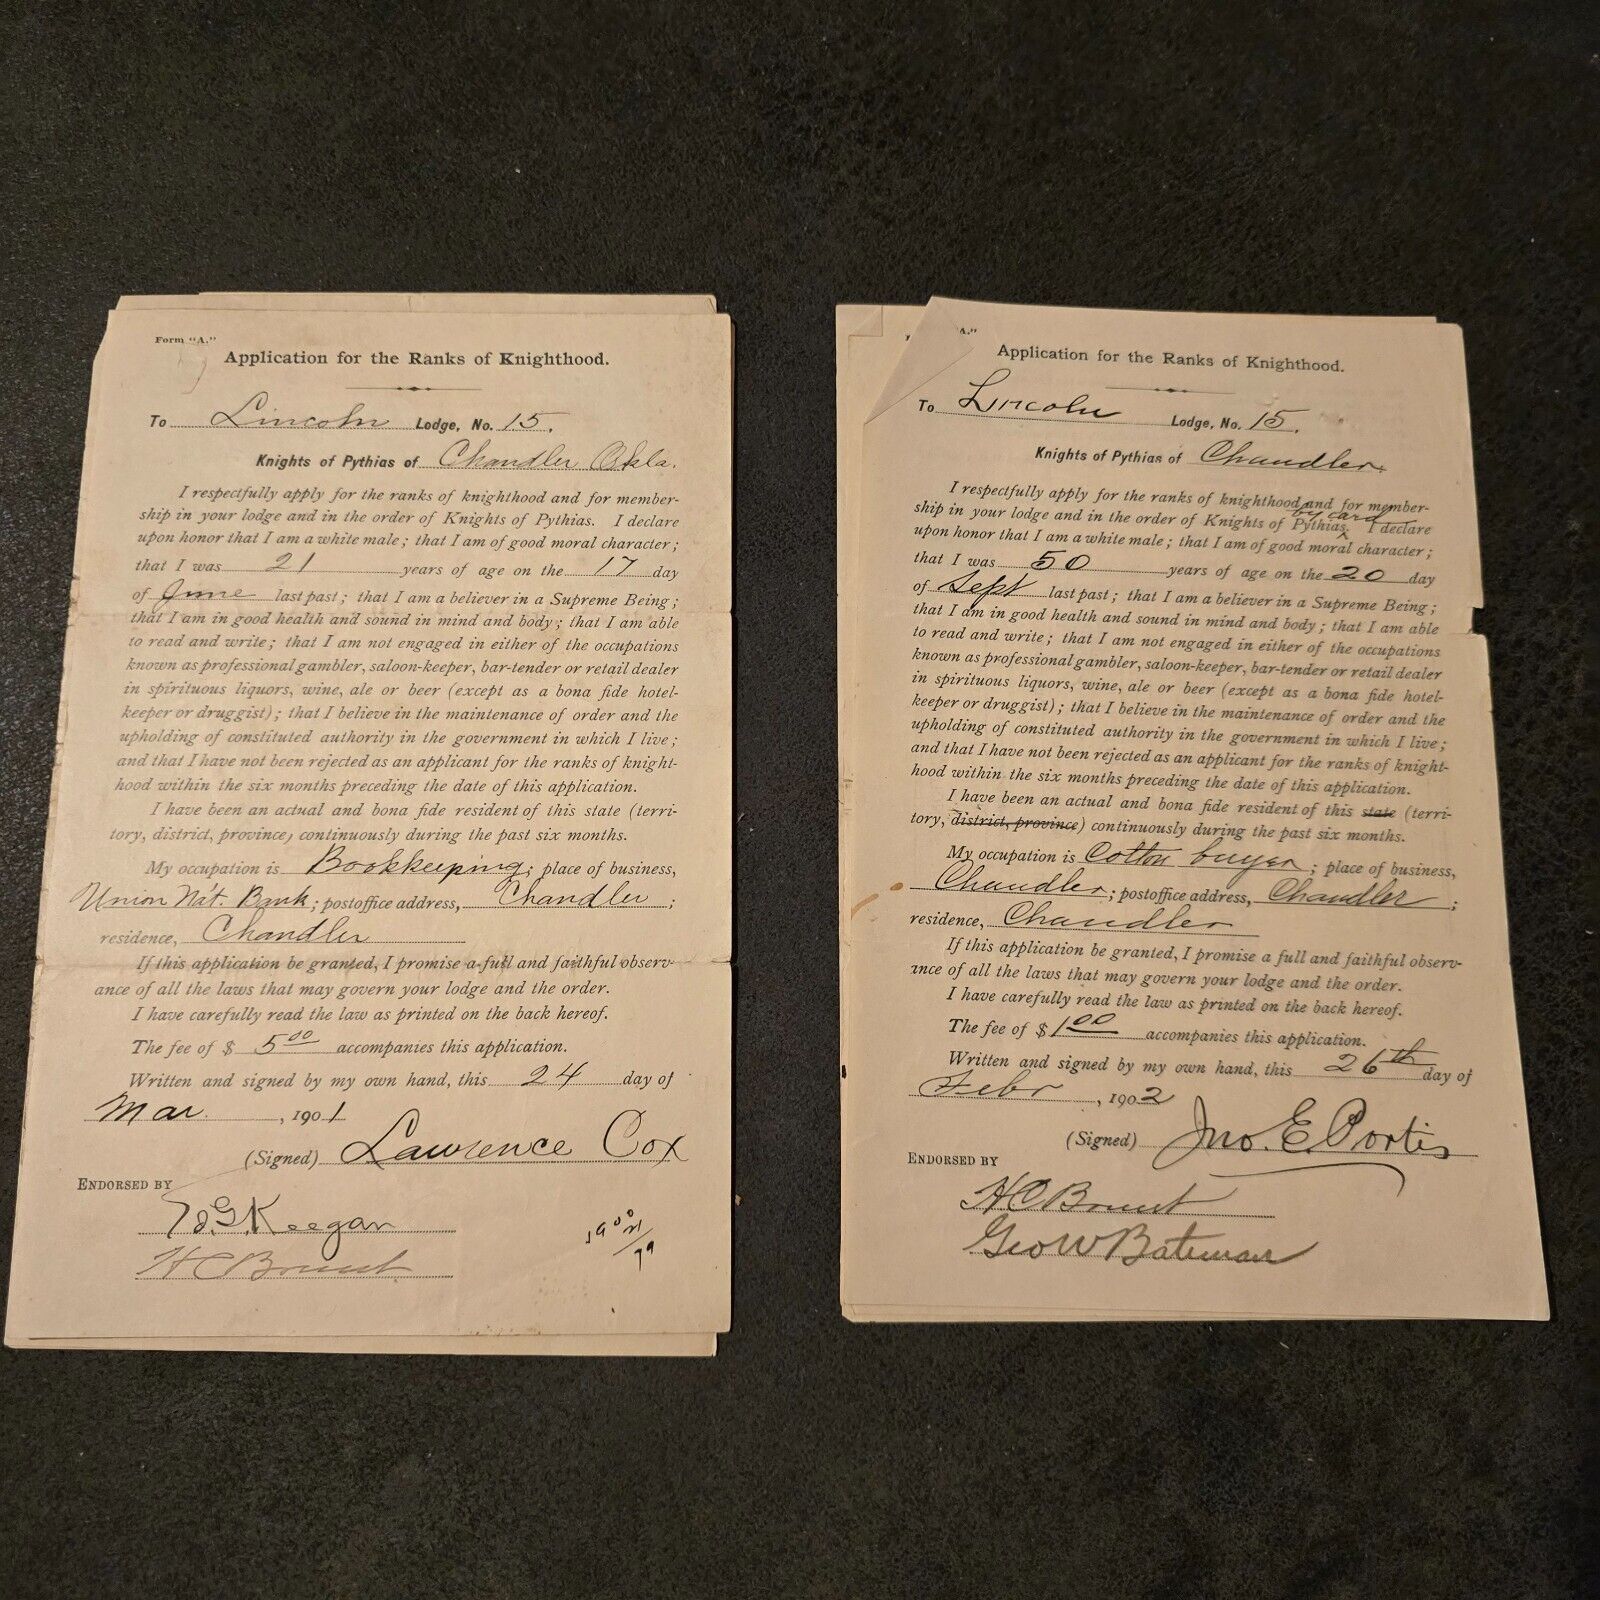 Form "A."
Application for the Ranks of Knighthood.
To Lincoln Lodge, No. 15.
Knights of Pythias of Chandler Okla.
I respectfully apply for the ranks of knighthood and for member-
ship in your lodge and in the order of Knights of Pythias. I declare
upon honor that I am a white male; that I am of good moral character;
that I was 21 years of age on the 17 day
of June last past; that I am a believer in a Supreme Being;
that I am in good health and sound in mind and body; that I am able
to read and write; that I am not engaged in either of the occupations
known as professional gambler, saloon-keeper, bar-tender or retail dealer
in spirituous liquors, wine, ale or beer (except as a bona fide hotel-
keeper or druggist); that I believe in the maintenance of order and the
upholding of constituted authority in the government in which I live;
and that I have not been rejected as an applicant for the ranks of knight-
hood within the six months preceding the date of this application.
I have been an actual and bona fide resident of this state (terri-
tory, district, province) continuously during the past six months.
My occupation is Bookkeeping; place of business,
Union Nat. Bank; postoffice address, Chandler;
residence, Chandler
If this application be granted, I promise a full and faithful observ-
ance of all the laws that may govern your lodge and the order.
I have carefully read the law as printed on the back hereof.
The fee of $ 5 00 accompanies this application.
Written and signed by my own hand, this 24 day of
Mar, 1901
(Signed) Lawrence Cox
ENDORSED BY
Keegan
H C Brunt
A."
Application for the Ranks of Knighthood.
To Lincoln Lodge, No. 15.
Knights of Pythias of Chandler.
I respectfully apply for the ranks of knighthood and for member-
by card
ship in your lodge and in the order of Knights of Pythias. I declare
upon honor that I am a white male; that I am of good moral character;
that I was 50 years of age on the 20 day
of Sept last past; that I am a believer in a Supreme Being;
that I am in good health and sound in mind and body; that I am able
to read and write; that I am not engaged in either of the occupations
known as professional gambler, saloon-keeper, bar-tender or retail dealer
in spirituous liquors, wine, ale or beer (except as a bona fide hotel-
keeper or druggist); that I believe in the maintenance of order and the
upholding of constituted authority in the government in which I live;
and that I have not been rejected as an applicant for the ranks of knight-
hood within the six months preceding the date of this application.
I have been an actual and bona fide resident of this state (terri-
tory, district, province) continuously during the past six months.
My occupation is Cotton buyer; place of business,
Chandler; postoffice address, Chandler;
residence, Chandler
If this application be granted, I promise a full and faithful observ-
ance of all the laws that may govern your lodge and the order.
I have carefully read the law as printed on the back hereof.
The fee of $ 1 00 accompanies this application.
Written and signed by my own hand, this 26th day of
Febr, 1902
(Signed) Jno. E. Portis
ENDORSED BY
H C Brunt
Geo W Bateman